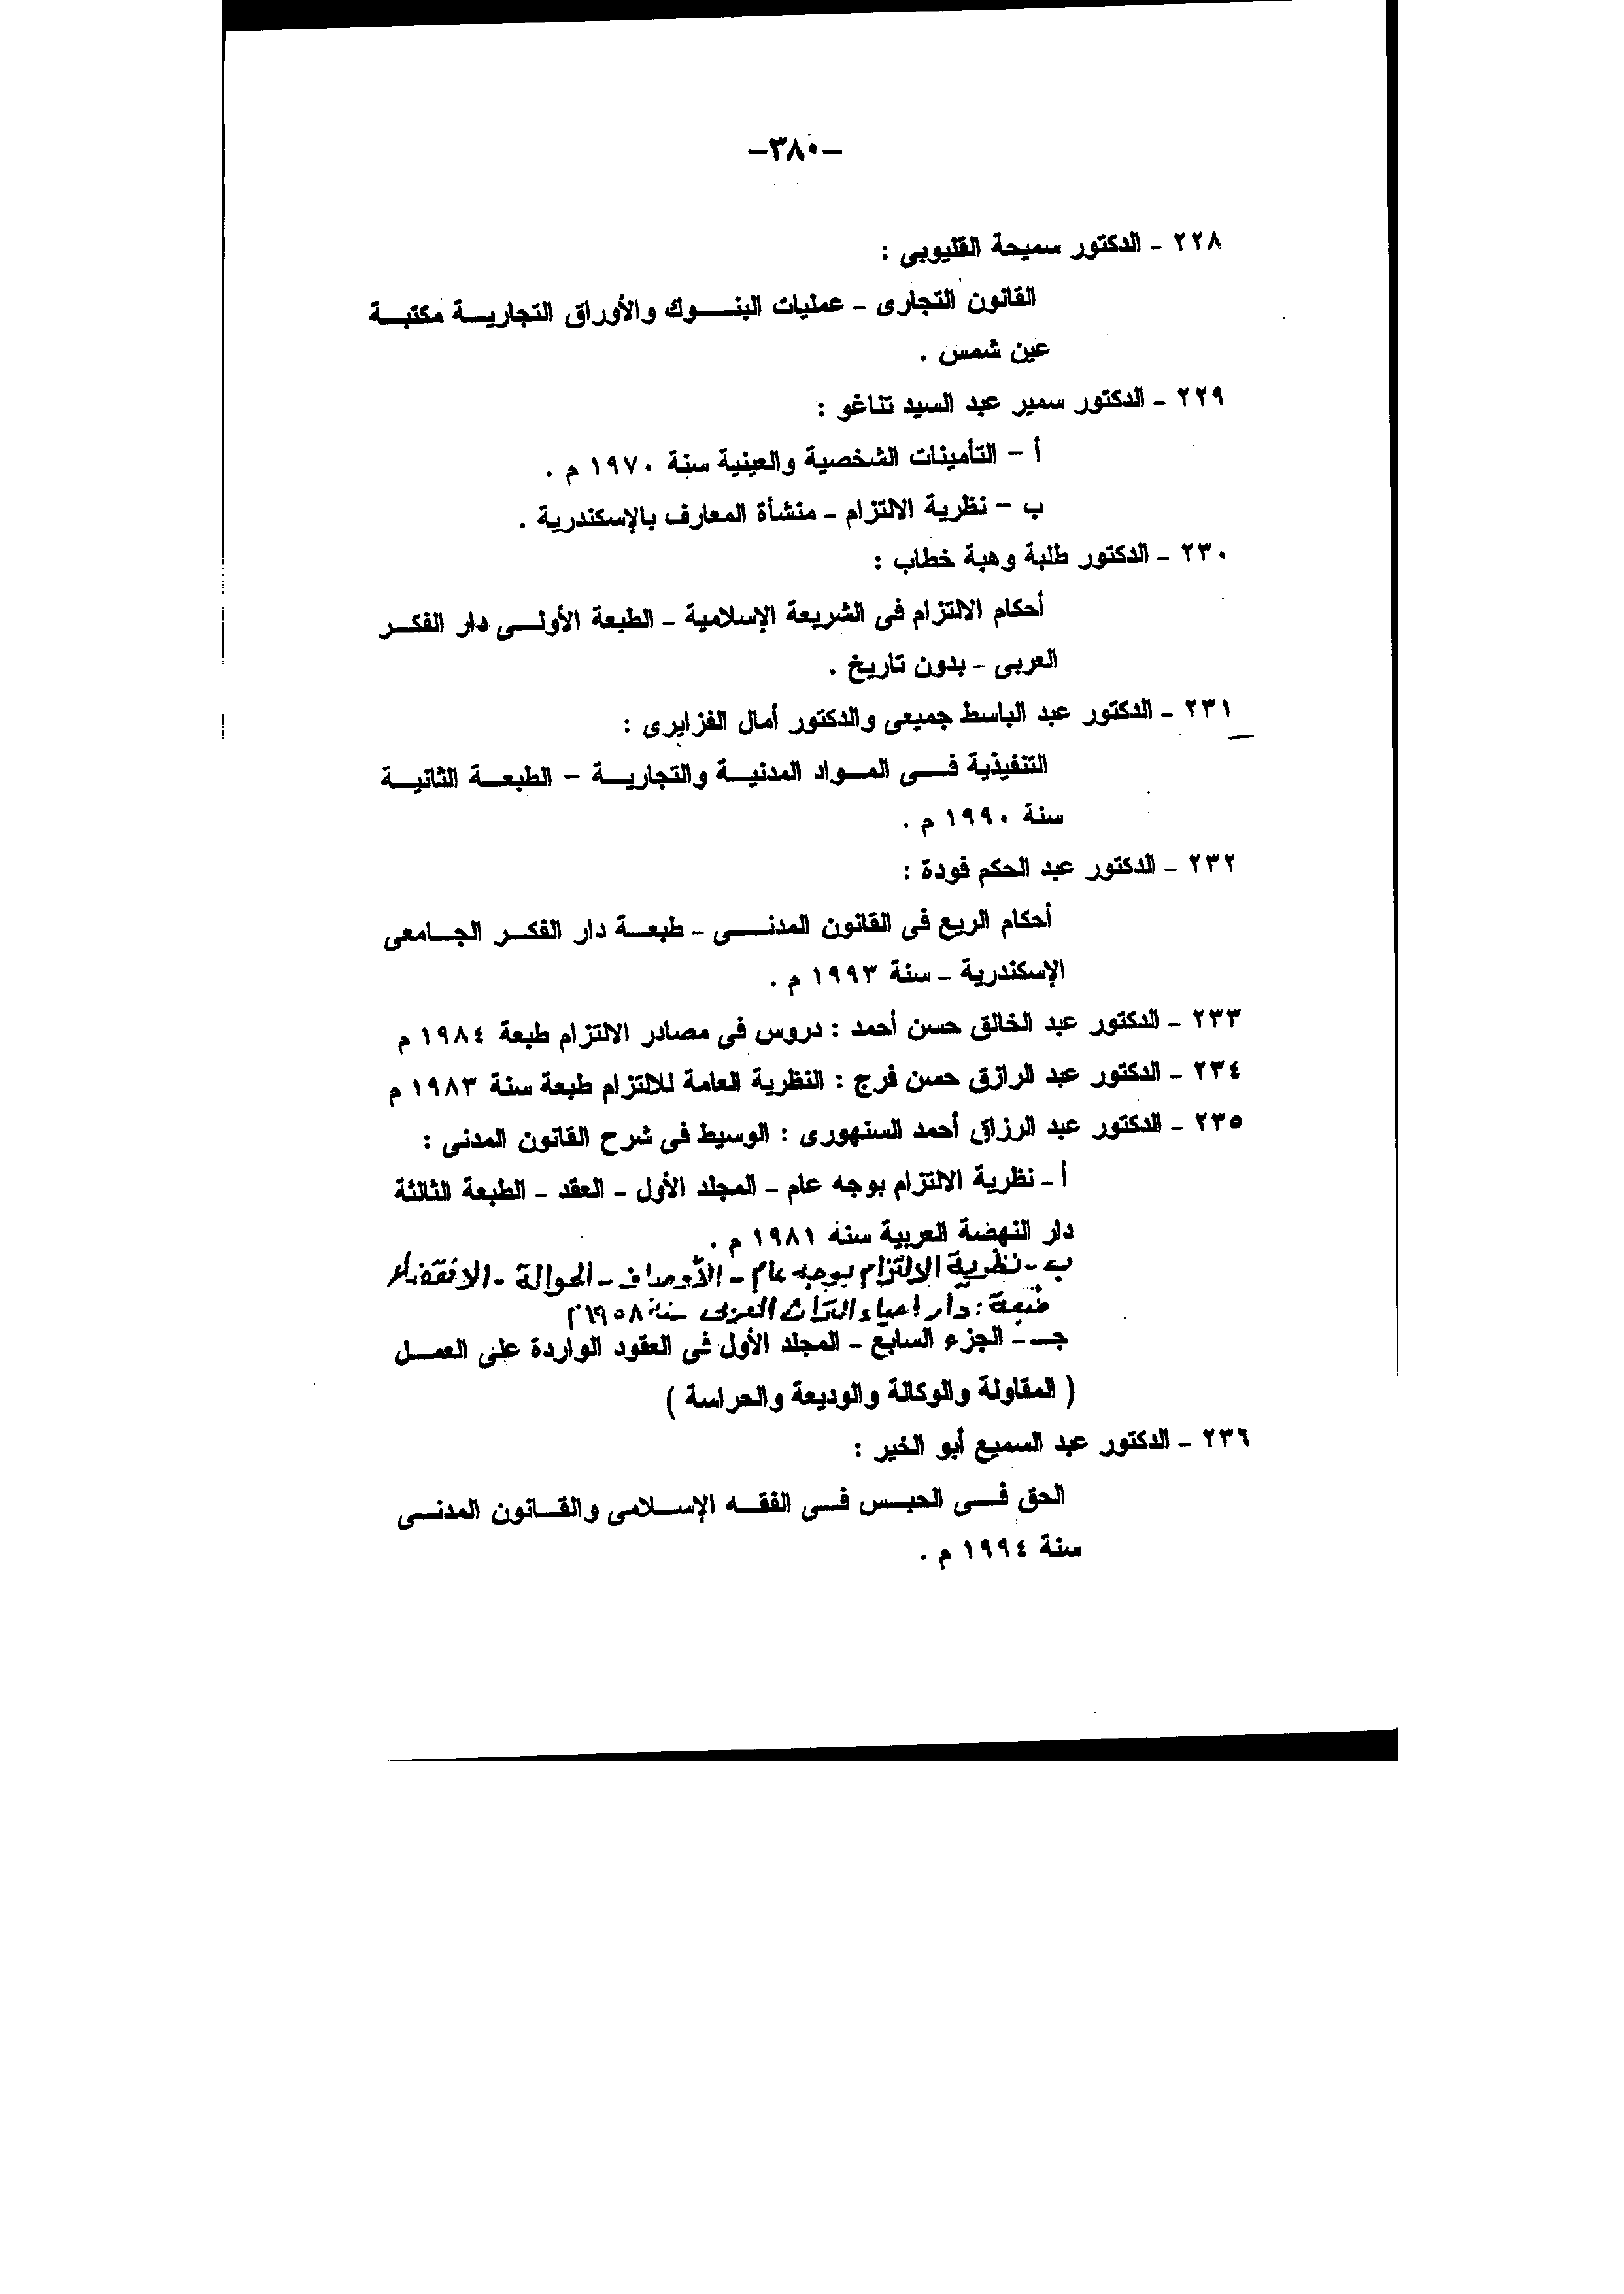 -٣٨٠-
٢٢٨ - الدكتور سميحة القليوبى :
القانون التجارى - عمليات البنوك والأوراق التجارية مكتبة
عين شمس .
٢٢٩ - الدكتور سمير عبد السيد تناغو :
أ - التأمينات الشخصية والعينية سنة ١٩٧٠ م .
ب - نظرية الالتزام - منشأة المعارف بالإسكندرية .
٢٣٠ - الدكتور طلبة وهبة خطاب :
أحكام الالتزام فى الشريعة الإسلامية - الطبعة الأولى دار الفكر
العربى - بدون تاريخ .
٢٣١ - الدكتور عبد الباسط جميعى والدكتور أمال الفزايرى :
التنفيذية فى المواد المدنية والتجارية - الطبعة الثانية
سنة ١٩٩٠ م .
٢٣٢ - الدكتور عبد الحكم فودة :
أحكام الريع فى القانون المدنى - طبعة دار الفكر الجامعى
الإسكندرية - سنة ١٩٩٣ م .
٢٣٣ - الدكتور عبد الخالق حسن أحمد : دروس فى مصادر الالتزام طبعة ١٩٨٤ م
٢٣٤ - الدكتور عبد الرازق حسن فرج : النظرية العامة للالتزام طبعة سنة ١٩٨٣ م
٢٣٥ - الدكتور عبد الرزاق أحمد السنهورى : الوسيط فى شرح القانون المدنى :
أ - نظرية الالتزام بوجه عام - المجلد الأول - العقد - الطبعة الثالثة
دار النهضة العربية سنة ١٩٨١ م .
ب - نظرية الالتزام بوجه عام - الأوصاف - الحوالة - الانقضاء
طبعة : دار إحياء التراث العربى سنة ١٩٥٨ م
جـ - الجزء السابع - المجلد الأول فى العقود الواردة على العمل
( المقاولة والوكالة والوديعة والحراسة )
٢٣٦ - الدكتور عبد السميع أبو الخير :
الحق فى الحبس فى الفقه الإسلامى والقانون المدنى
سنة ١٩٩٤ م .